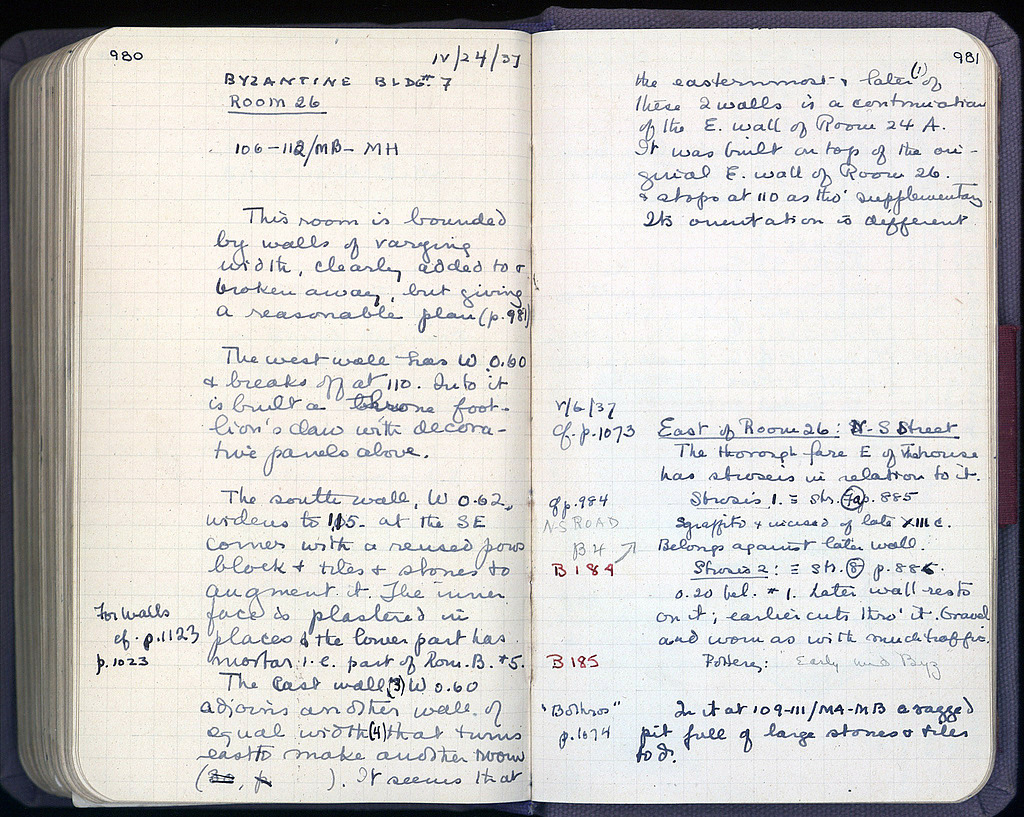 980
IV/24/37
BYZANTINE BLDG. #7
ROOM 26
106-112/MB-MH
This room is bounded
by walls of varying
width, clearly added to &
broken away, but giving
a reasonable plan (p. 981)
The west wall has W 0.60
& breaks off at 110. Into it
is built a throne foot -
lion's claw with decora-
tive panels above.
The south wall, W 0.62,
widens to 1.15 at the SE
corner with a reused poros
block & tiles & stones to
augment it. The inner
face is plastered in
For walls
cf. p. 1123
p. 1023
places & the lower part has
mortar i.e. part of Rom. B. #5.
The East wall (3) W 0.60
adjoins another wall of
equal width (4) that turns
east to make another room
( , ). It seems that
981
the easternmost & later (1) of
these 2 walls is a continuation
of the E. wall of Room 24 A.
It was built on top of the ori-
ginal E. wall of Room 26.
& stops at 110 as tho' supplementary
Its orientation is different
V/6/37
cf. p. 1073
East of Room 26: N-S Street
The thoroughfare E of the house
has stroseis in relation to it.
cf p. 984
Strosis 1. ≡ str. p. 885
N-S ROAD
Sgraffito & incised of late XIII c.
B 4
Belongs against later wall.
B 184
Strosis 2: ≡ str. (8) p. 886
0.20 bel. #1. Later wall rests
on it; earlier cuts thro' it. Gravel
and worn as with much traffic.
B 185
Pottery: Early and Byz
"Bothros"
p. 1074
In it at 109-111/MA-MB a ragged
pit full of large stones & tiles